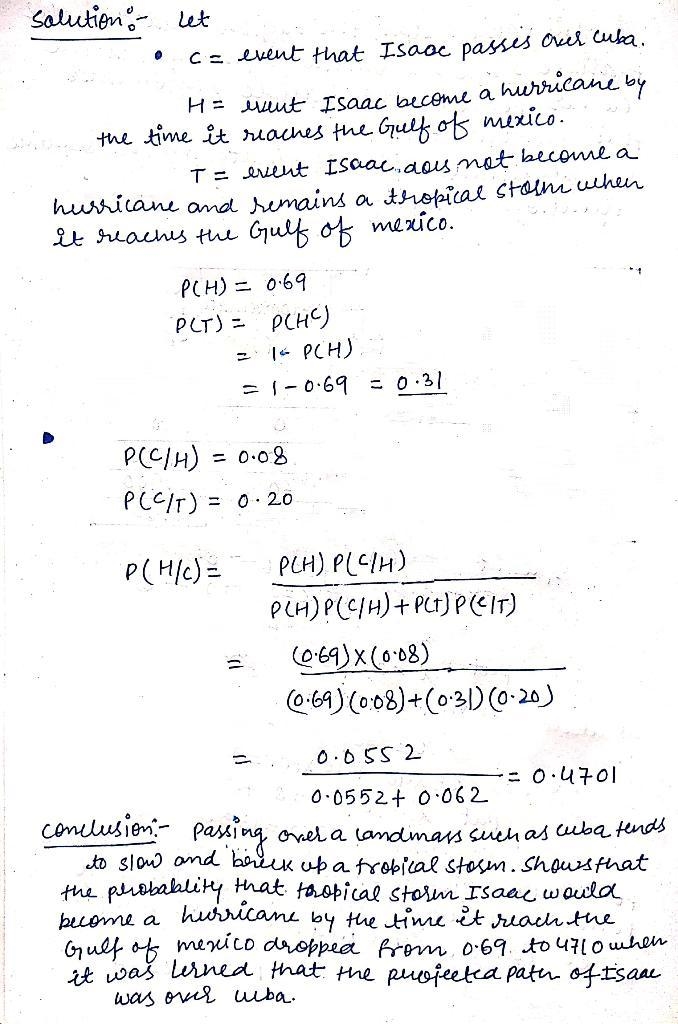 Solution:- Let
• C = event that Isaac passes over cuba.
H = event Isaac become a hurricane by
the time it reaches the Gulf of mexico.
T = event Isaac does not become a
hurricane and remains a tropical storm when
it reaches the Gulf of mexico.
P(H) = 0.69
P(T) = P(HC)
= 1- P(H)
= 1-0.69 = 0.31
P(C/H) = 0.08
P(C/T) = 0.20
P(H/C) = P(H) P(C/H)
P(H) P(C/H) + P(T) P(C/T)
= (0.69)X(0.08)
(0.69)(0.08)+(0.31)(0.20)
= 0.0552
0.0552+ 0.062 = 0.4701
conclusion:- passing over a landmass such as cuba tends
to slow and up a tropical storm. Shows that
the probability that tropical storm Isaac would
become a hurricane by the time it reach the
Gulf of mexico dropped from 0.69 to 4710 when
it was lerned that the projected path of Isaac
was over cuba.